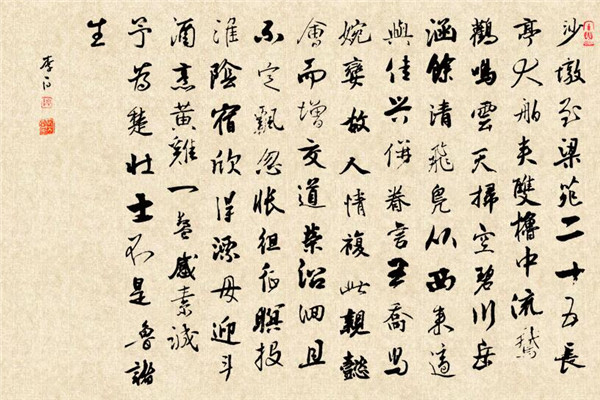 沙墩至梁苑二十五長
亭大舶夾雙櫓中流鵝
鸛鳴雲天掃空碧川岳
涵餘清飛鳧从西來適
與佳兴併眷言王喬舄
婉孌故人情複此親懿
會而增交道榮沿洄且
不定飄忽悵徂征暝投
淮陰宿欣得漂母迎斗
酒烹黃雞一餐感素誠
予為楚壯士不是魯諸
生
李白